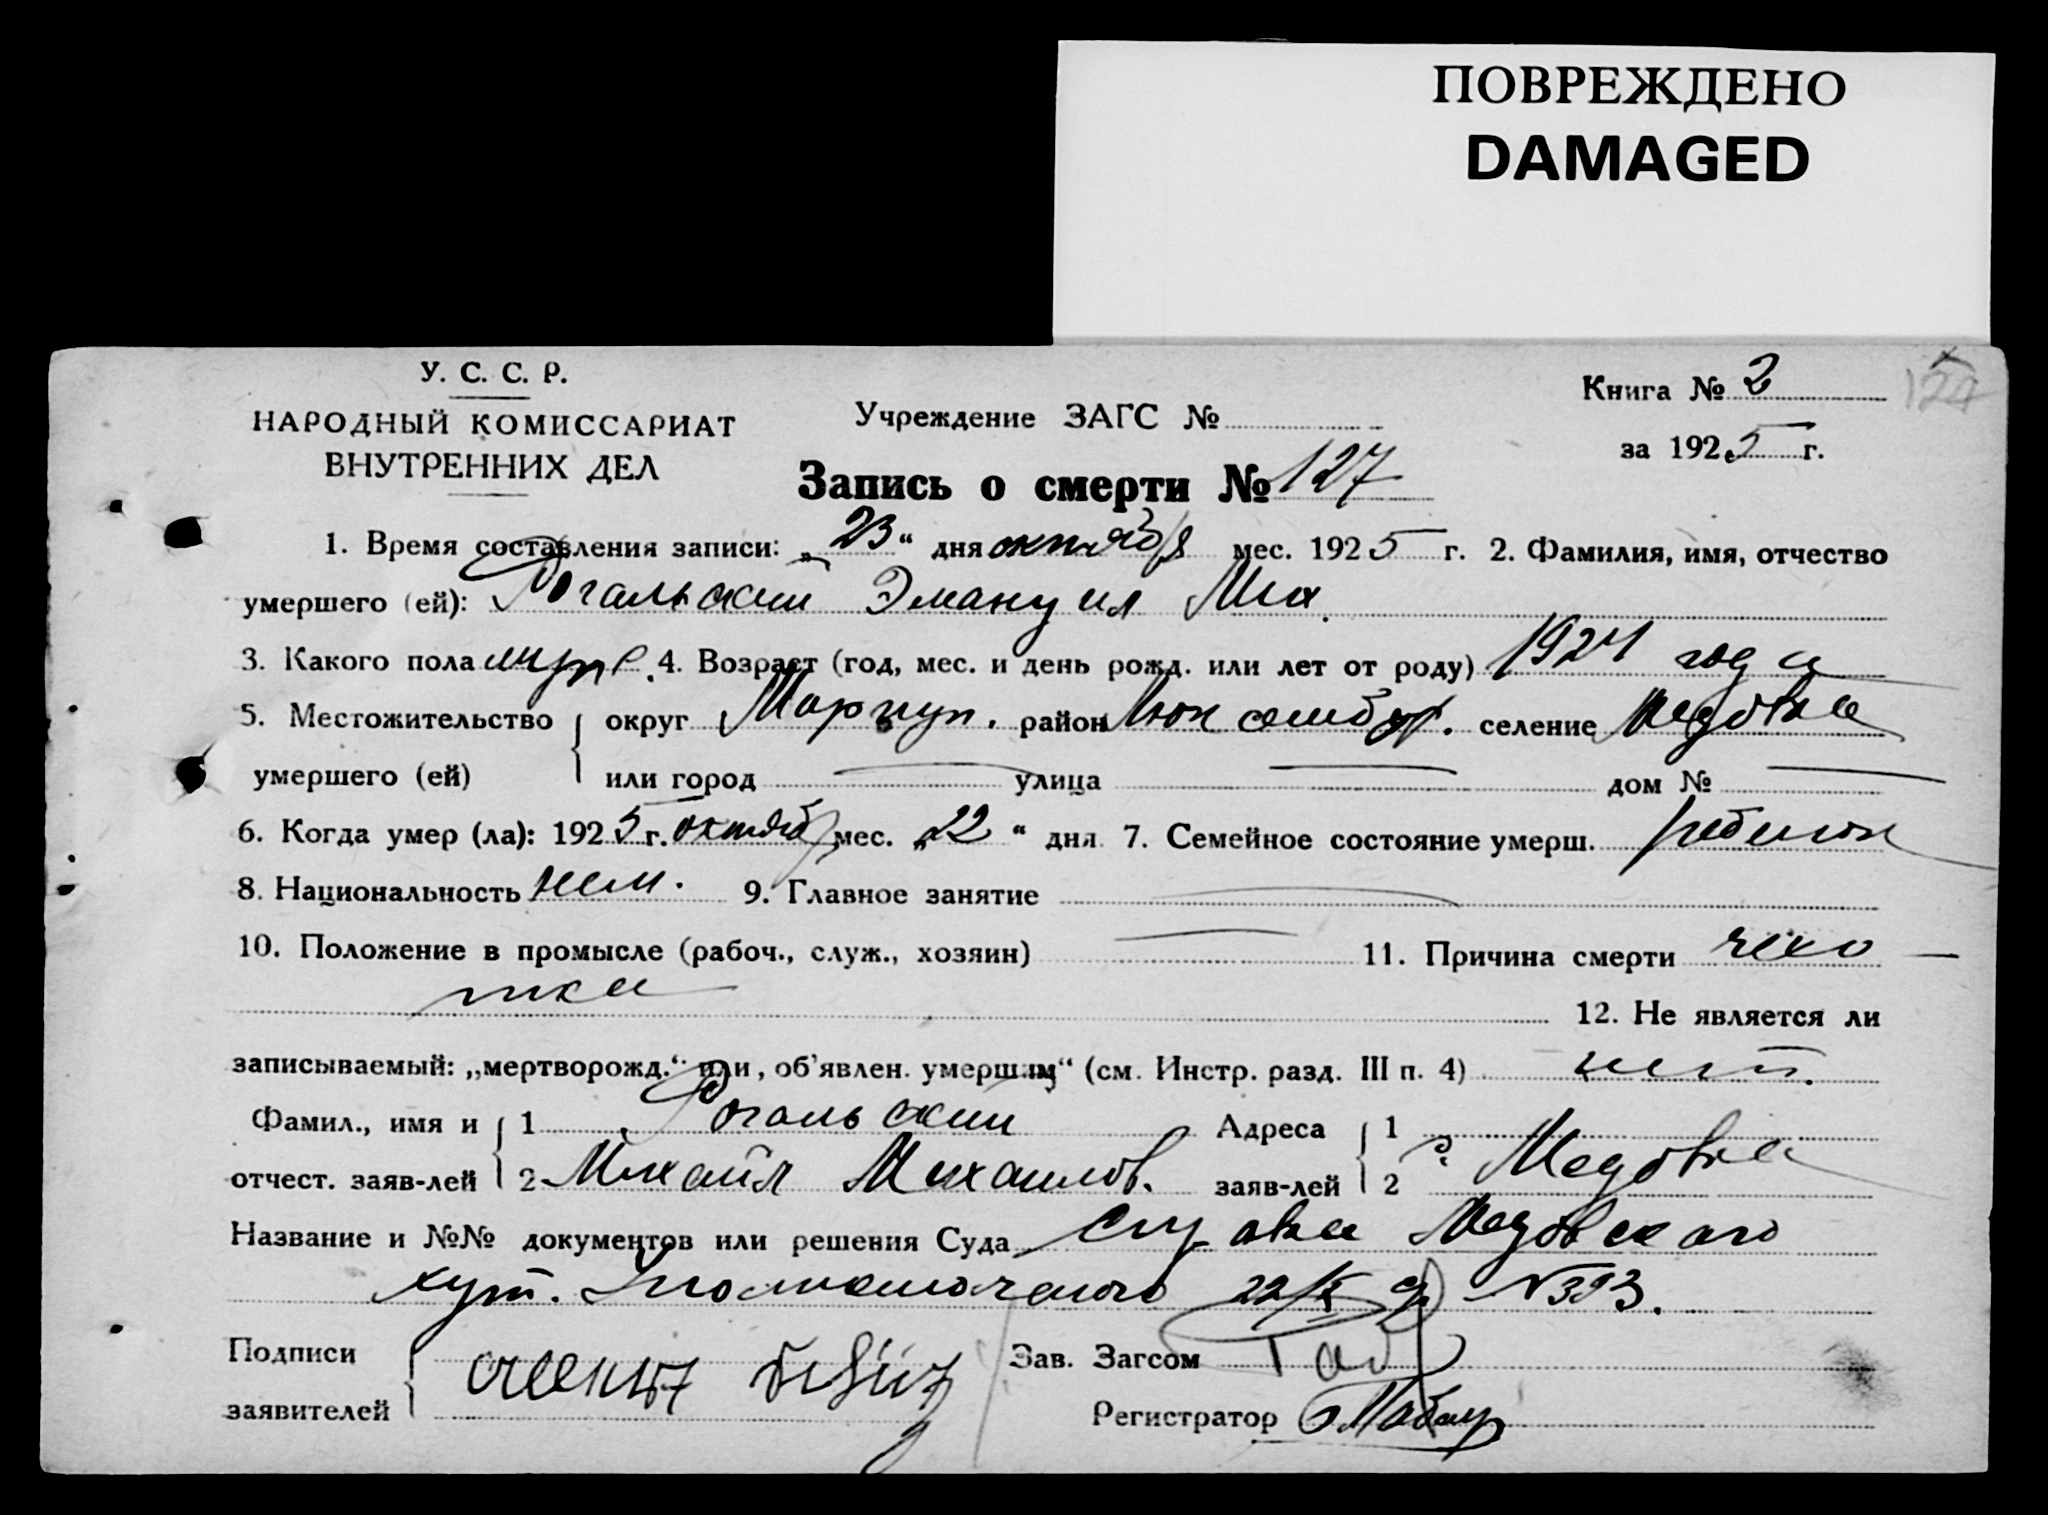 ПОВРЕЖДЕНО
DAMAGED
У. С. С. Р.
НАРОДНЫЙ КОМИССАРИАТ
ВНУТРЕННИХ ДЕЛ
Учреждение ЗАГС №
Книга № 2
за 1925 г.
Запись о смерти № 127
1. Время составления записи: „23“ дня октября мес. 1925 г. 2. Фамилия, имя, отчество
умершего (ей): Рогальский Эмануил Мих.
3. Какого пола муже. 4. Возраст (год, мес. и день рожд. или лет от роду) 1924 года
5. Местожительство округ Мариуп. район Люксембур. селение Медовка
умершего (ей) или город — улица — дом № —
6. Когда умер (ла): 1925 г. октябр мес. „22“ дня 7. Семейное состояние умерш. ребенок
8. Национальность нем. 9. Главное занятие —
10. Положение в промысле (рабоч., служ., хозяин) — 11. Причина смерти чахо-
тка
12. Не является ли
записываемый: „мертворожд.“ или „об'явлен. умершим“ (см. Инстр. разд. III п. 4) нет.
Фамил., имя и 1 Рогальский Адреса 1
отчест. заяв-лей 2 Михайл Михаилов. заяв-лей 2 с. Медовка
Название и №№ документов или решения Суда Справка Медовского
хут. Уполномоченого 22/X с/г №393.
Подписи
заявителей
Зав. Загсом
Регистратор